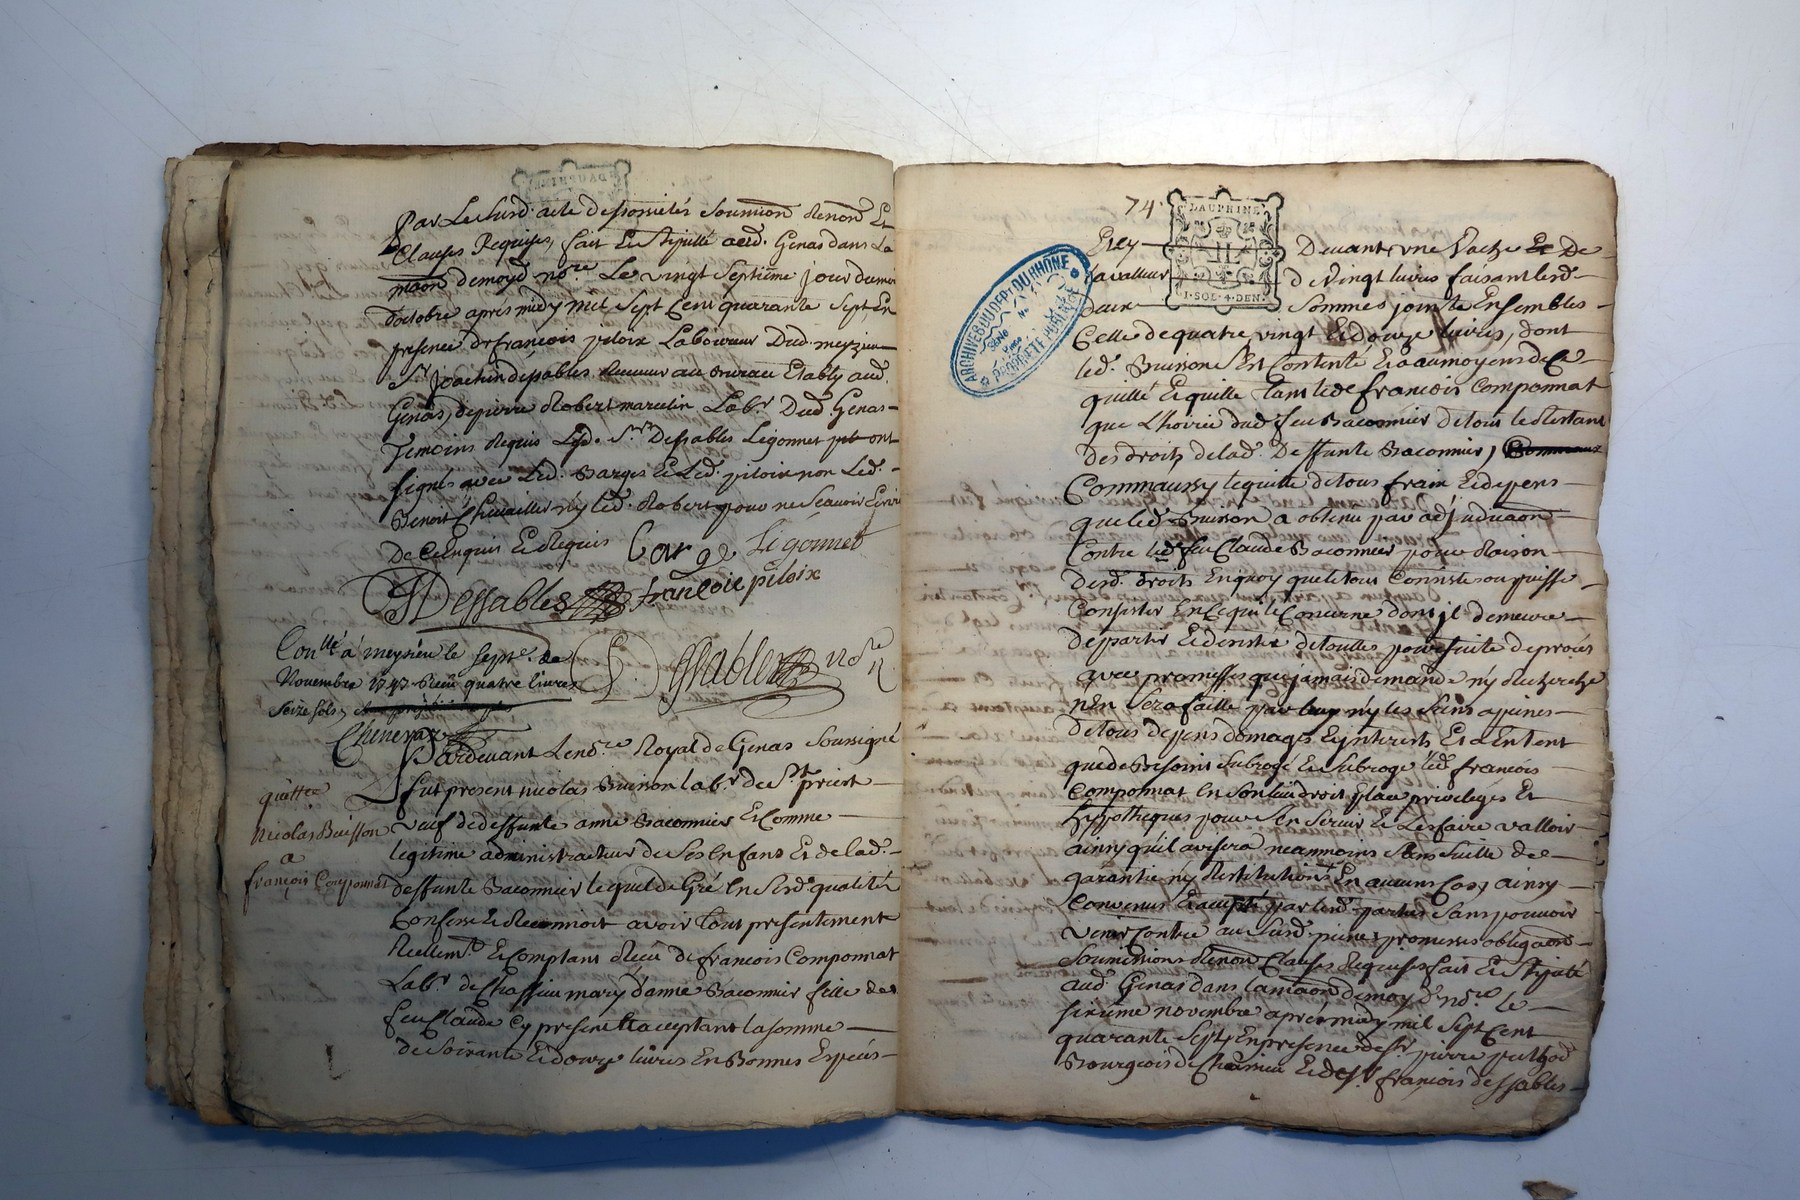 Par Le Surd. acte despossietés Soumion Renon Et
Clauses Requises, fait Et Stipullé aud. Genas dans La
maon demoyd nore Le vingt Septieme jour dumoi
doctobre apres midy mil Sept Cent quarante Sept En
presence de francois piloix Laboureur Dud. meyzieu
Sr. Joachin dessables Receveur au bureau Etably aud.
Genas, de pierre Robert marcelin Labr. Dud. Genas
Temoins Requis Led. Srs. Dessables Legonnet ont
Signés avec Led. Barges Et Led. piloix non Led.
Benoit Chevaillier ny led. Robert pour ne Scavoir Ecrire
De Ce Enquis Et Requis Barge Légonnet
Dessables francois piloix
Conllé à meysieu le Septe. de Dessables nore
Novembre 1747 Reçu quatre livres
Seize Sols
Chenevaz
Pardevant Lenore Royal de Genas Soussigné
quittce fut present nicolas Buisson labr. de St. priest
Nicolas Buisson veuf de deffunte anne Baconnier Et Comme
a legitime administracteur de Ses Enfans Et de lad.
francois Componnat deffunte Baconnier lequel de Gré En Sesd. qualités
Confesse Et Reconnoit avoir Tout presentement
Reellemt. Et Comptant Reçu de francois Componnat
Labr. de Chassieu mary danne Baconnier fille de
feu Claude Cy present Et acceptant la somme
de Soixante Et douze livres En Bonnes Especes
74.
DAUPHINE
II
1·SOL·4·DEN.
ARCHIVES DU DEPT DU RHONE
PROPRIETE PUBLIQUE
Et ey Devant, une Vache Et De
la valleur d Vingt livres faisant lesd.
deux Sommes jointe Ensembles
Celle de quatre vingt Et douze livres, dont
led. Buisson S'En Contente Et au moyens de Ce
quitté Et quitte Tant led. francois Componnat
que L'hoirie dud. feu Baconnier de tous le Restant
Des droits de lad. Deffunte Baconnier,
Comm aussy le quitte de tous frair Et depens
que led. Buisson a obtenu par adjudicaon
Contre led. feu Claude Baconnier pour Raison
desd. droits En quoy que le tous Consiste ou puisse
Consister En Ce qui le Concerne dont jl demeure
departir Et deriste detouttes poursuite de procés
avec promesses que jamais demande n'y Recherche
n'En Sera faitte par luy n'y les Siens a peines
de tous depens domages Et jnterests Et a En tent
que de Besoins Subrogé Et Subroge led. francois
Componnat En Son lieu droit place privileges Et
hypotheques pour S'En Servir Et Les faire valloir
ainsy qu'il avisera neanmoins Sans Suitte de
garantie ny Restitutions En aucuns Cas, ainsy
Convenus Et accepté par lesd. parties Sans pouvoir
venir Contre au Surd. peines promesses obligaon
Soumissions Renon Clauses Requises fait Et Stipulé
aud. Genas dans la maon demoy d. nore le
Sixieme novembre apres midy mil Sept Cent
quarante Sept, En presence de Sr. pierre
Bourgeois de Chassieu Et de Sr. francois dessables